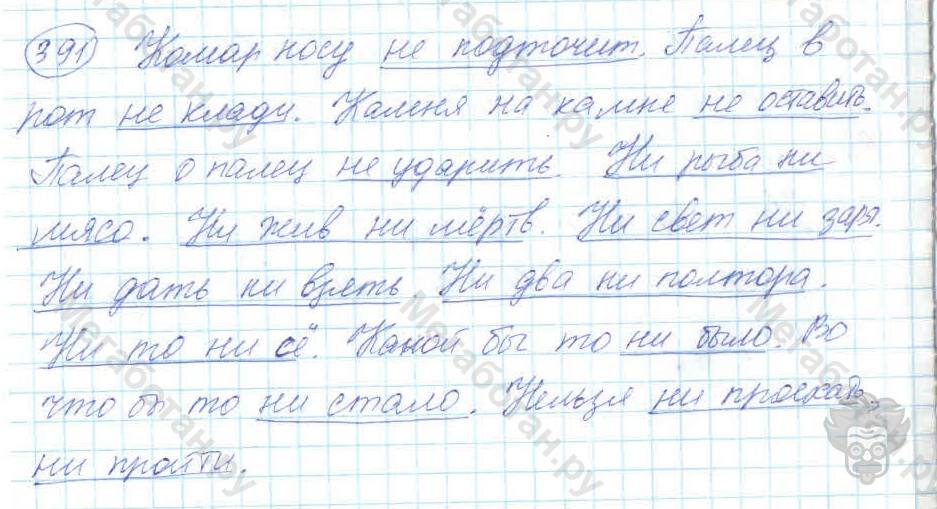 391 Комар носу не подточит. Палец в
рот не клади. Камня на камне не оставить.
Палец о палец не ударить. Ни рыба ни
мясо. Ни жив ни мёртв. Ни свет ни заря.
Ни дать ни взять Ни два ни полтора.
Ни то ни сё. Какой бы то ни было. Во
что бы то ни стало. Нельзя ни проехать,
ни пройти.
Мегаботан.ру